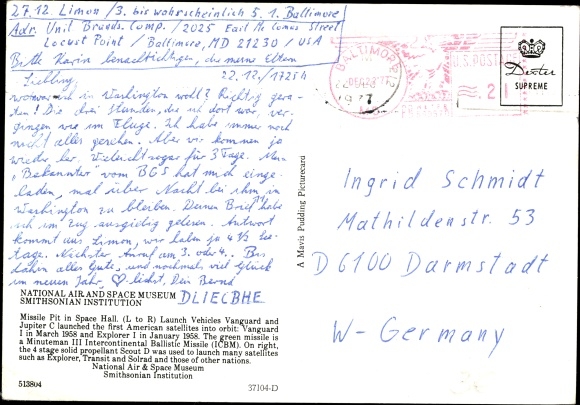 27.12. Limon /3. bis wahrscheinlich 5.1. Baltimore
Adr. Unit Brands. Comp. /2025 East Mc Comas Street
Locust Point / Baltimore, MD 21230 / USA
Bitte Karin benachrichtigen, die meine Eltern
Liebling, 22.12./17 25 h
wo war ich in Washington wohl? Richtig gera-
ten! Die drei Stunden, die ich dort war, ver-
gingen wie im Fluge. Ich habe immer noch
nicht alles gesehen. Aber wir kommen ja
wieder her. Vielleicht sogar für 3 Tage. Mein
"Bekannter vom BGS hat mich einge-
laden, mal über Nacht bei ihm in
Washington zu bleiben. Deinen Brief habe
ich im Zug ausgiebig gelesen. Antwort
kommt aus Limon, wir haben ja 4 1/2 See-
tage. Nächster Anruf am 3. oder 4.. Bis
dahin alles Gute, und nochmals viel Glück
im neuen Jahr, ♡lichst, Dein Bernd
DLIECBHE
NATIONAL AIR AND SPACE MUSEUM
SMITHSONIAN INSTITUTION
Missile Pit in Space Hall. (L to R) Launch Vehicles Vanguard and
Jupiter C launched the first American satellites into orbit: Vanguard
I in March 1958 and Explorer I in January 1958. The green missile is
a Minuteman III Intercontinental Ballistic Missile (ICBM). On right,
the 4 stage solid propellant Scout D was used to launch many satellites
such as Explorer, Transit and Solrad and those of other nations.
National Air & Space Museum
Smithsonian Institution
513804
37104-D
A Mavis Pudding Picturecard
BALTIMORE
DEC 22
1977
U.S. POSTAGE
.21
Dexter
SUPREME
Ingrid Schmidt
Mathildenstr. 53
D 6100 Darmstadt
W-Germany